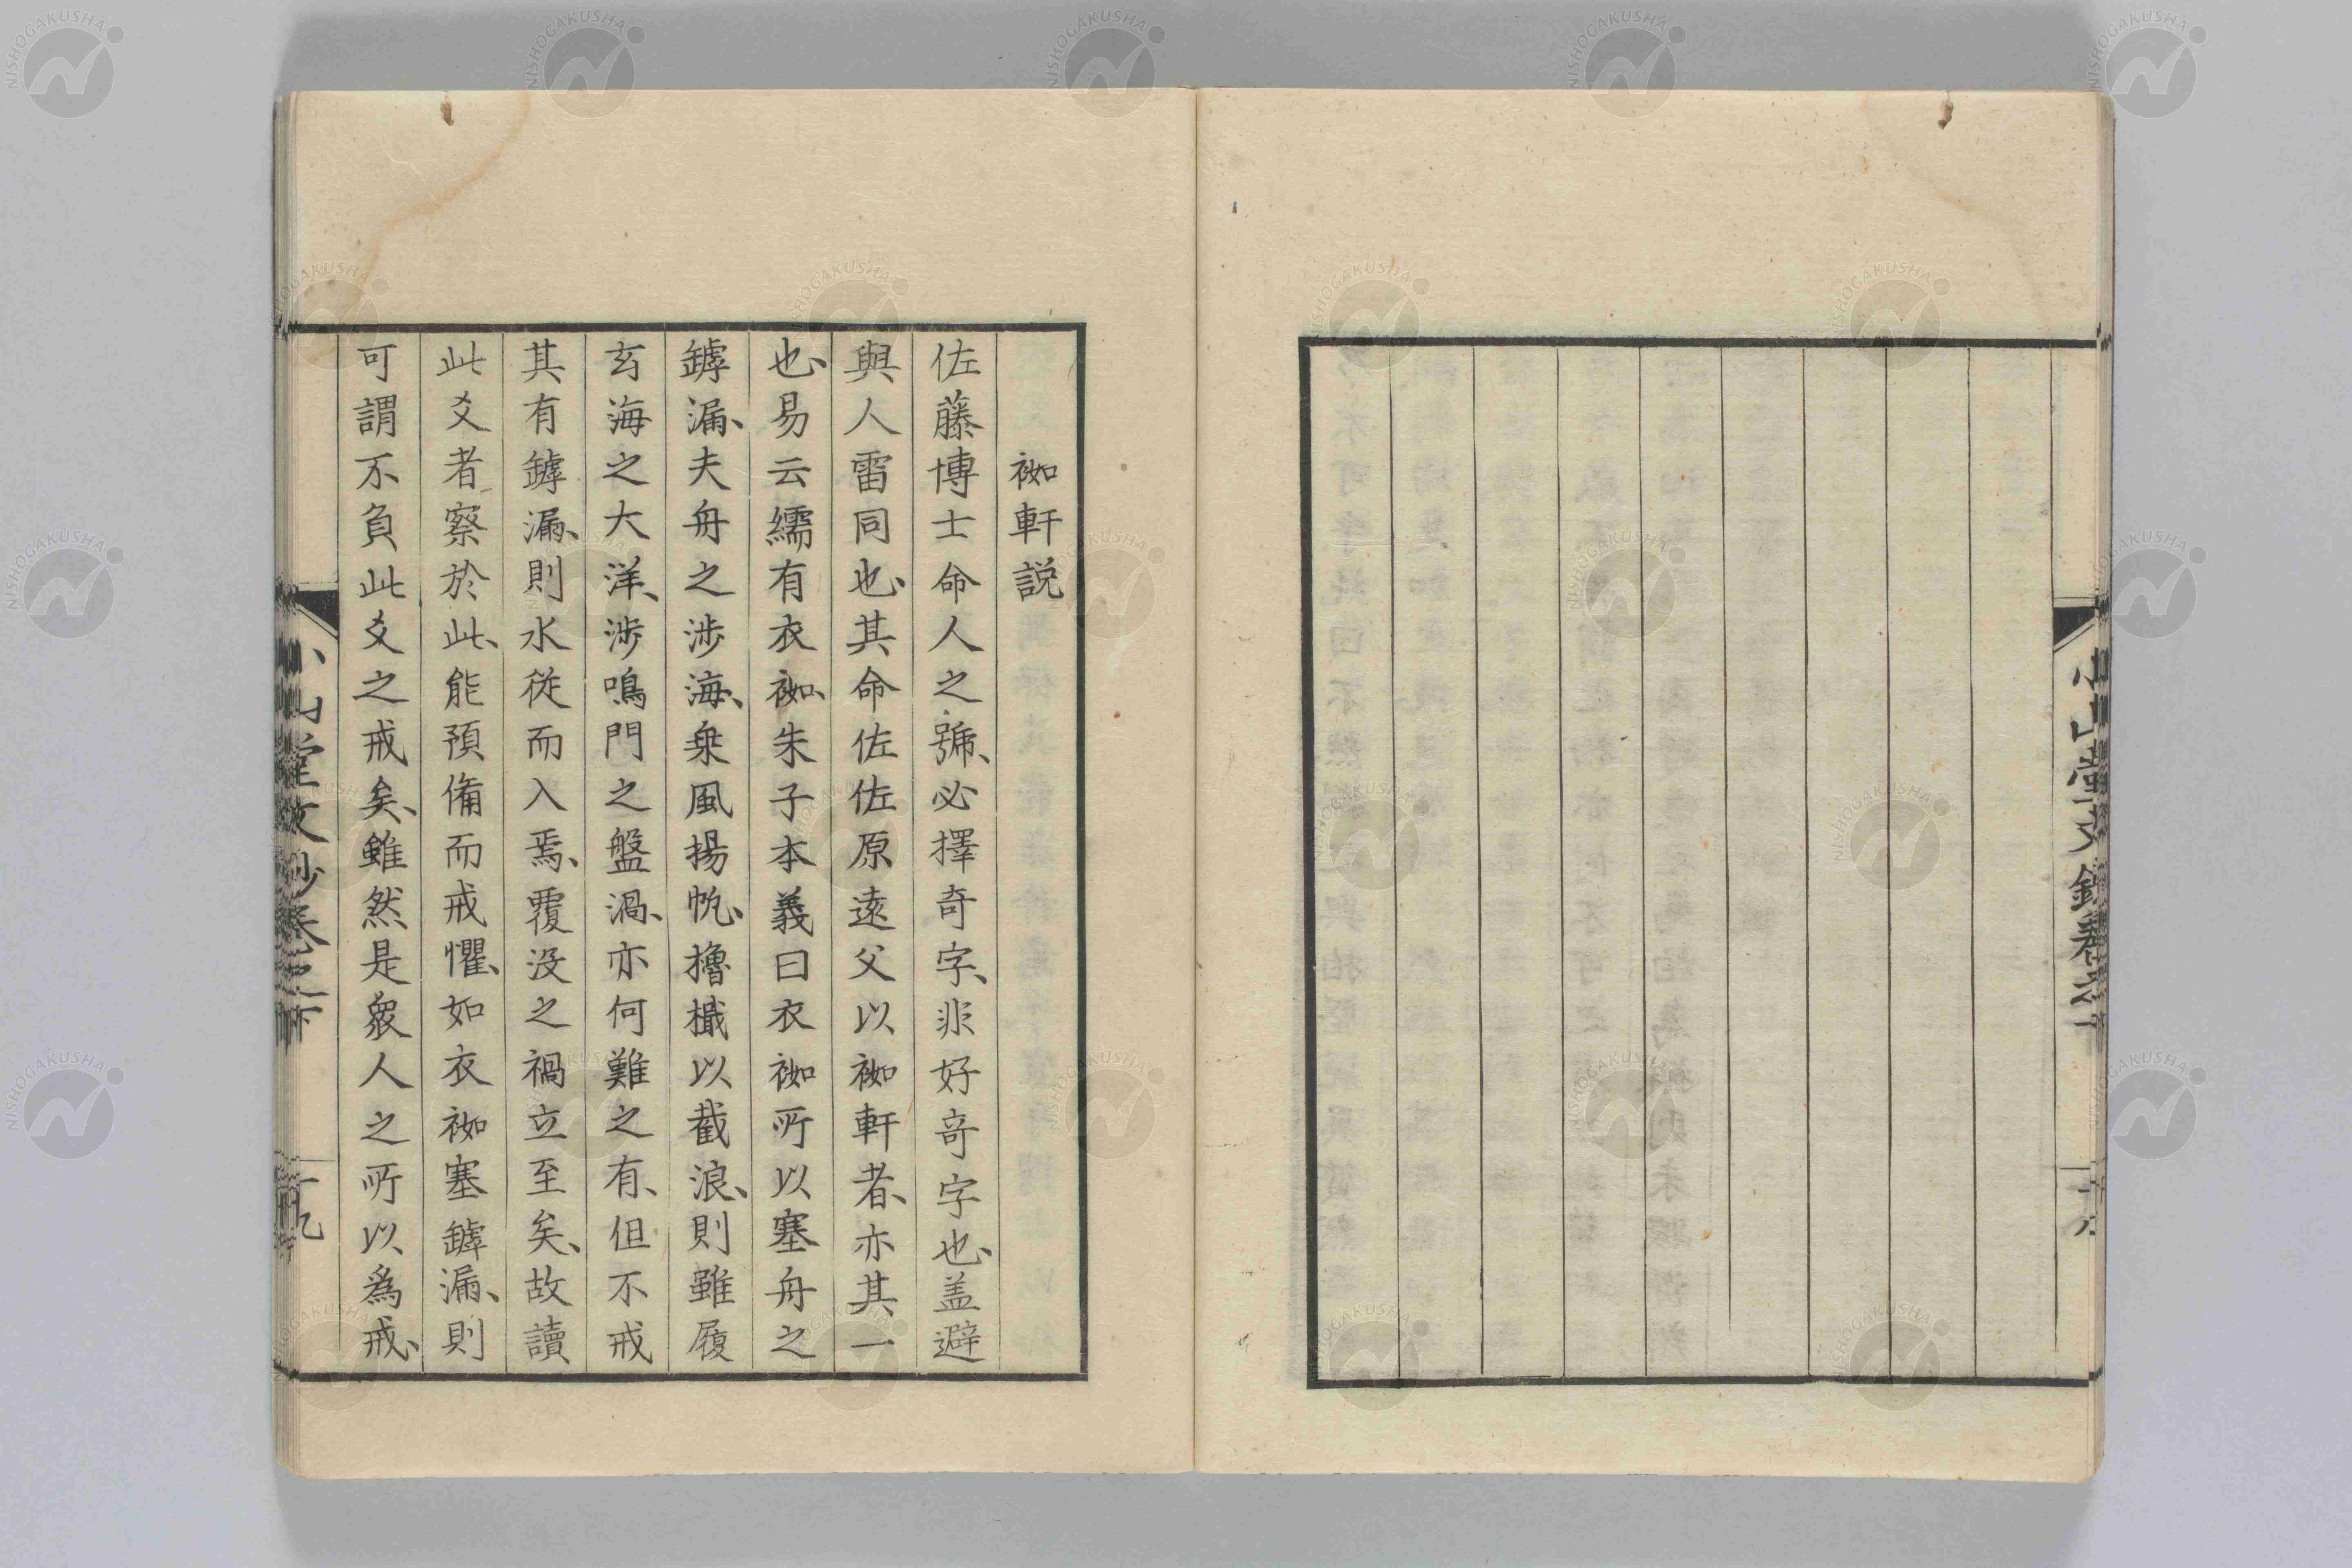 小山堂文鈔卷之下
袽軒説
佐藤博士命人之號、必擇奇字、非好竒字也、盖避
與人雷同也、其命佐佐原遠父以袽軒者、亦其一
也、易云繻有衣袽、朱子本義曰衣袽所以塞舟之
罅漏、夫舟之渉海、乗風揚帆、櫓檝以截浪、則雖履
玄海之大洋、渉鳴門之盤渦、亦何難之有、但不戒
其有罅漏、則水従而入焉、覆没之禍立至矣、故讀
此爻者察於此、能預備而戒懼、如衣袽塞罅漏、則
可謂不負此爻之戒矣、雖然是衆人之所以為戒、
小山堂文鈔卷之下
十九